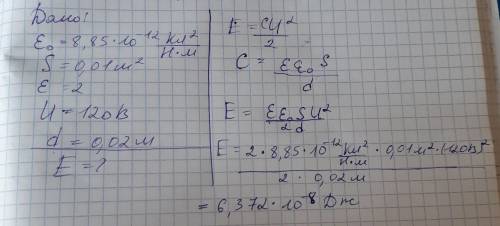 Дано:
ε₀ = 8,85·10⁻¹² Кл²/Н·м
S = 0,01 м²
ε = 2
U = 120 В
d = 0,02 м
E = ?
E = CU²/2
C = εε₀S/d
E = εε₀SU²/2d
E = 2·8,85·10⁻¹² Кл²/Н·м · 0,01 м² · (120В)²/2·0,02 м
= 6,372·10⁻⁸ Дж